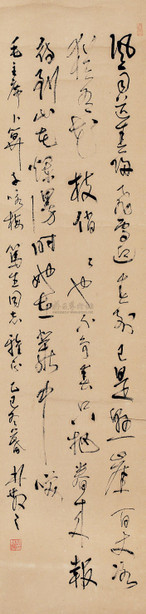 風雨送春归飛雪迎春到已是懸崖百丈冰
犹有花枝俏〻也不争春只把春来報
待到山花爛漫時她在丛中咲
毛主席卜算子咏梅 篤生同志雅正 乙巳冬暮 林散之